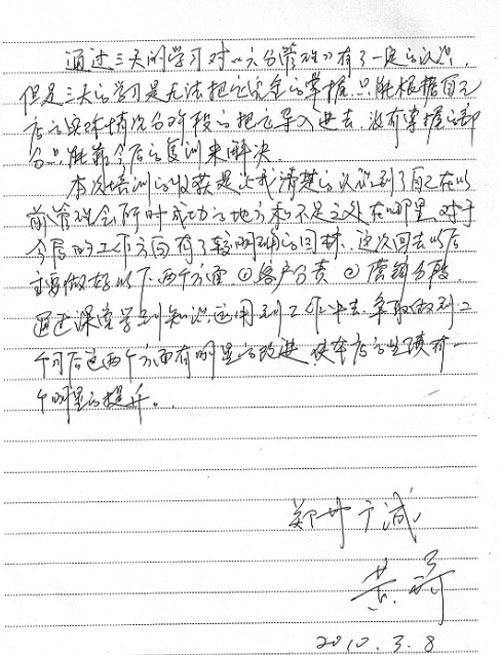 通过三天的学习对“六分管理”有了一定的认识,
但是三天的学习是无法把它完全的掌握.只能根据自己
店的实际情况分阶段的把它导入进去.没有掌握的部
分只能靠今后的复训来解决.
本次培训的收获是让我清楚的认识到了自己在以
前管理会所时成功的地方和不足之处在哪里.对于
今后的工作方面有了较明确的目标.这次回去以后
主要做好以下两个方面.①客户分责 ②营销分段.
通过课堂学到知识运用到工作中去.争取做到二
个月后这两个方面有明显的改进.使本店的业绩有一
个明显的提升。
郑州广诚
黄
2010.3.8